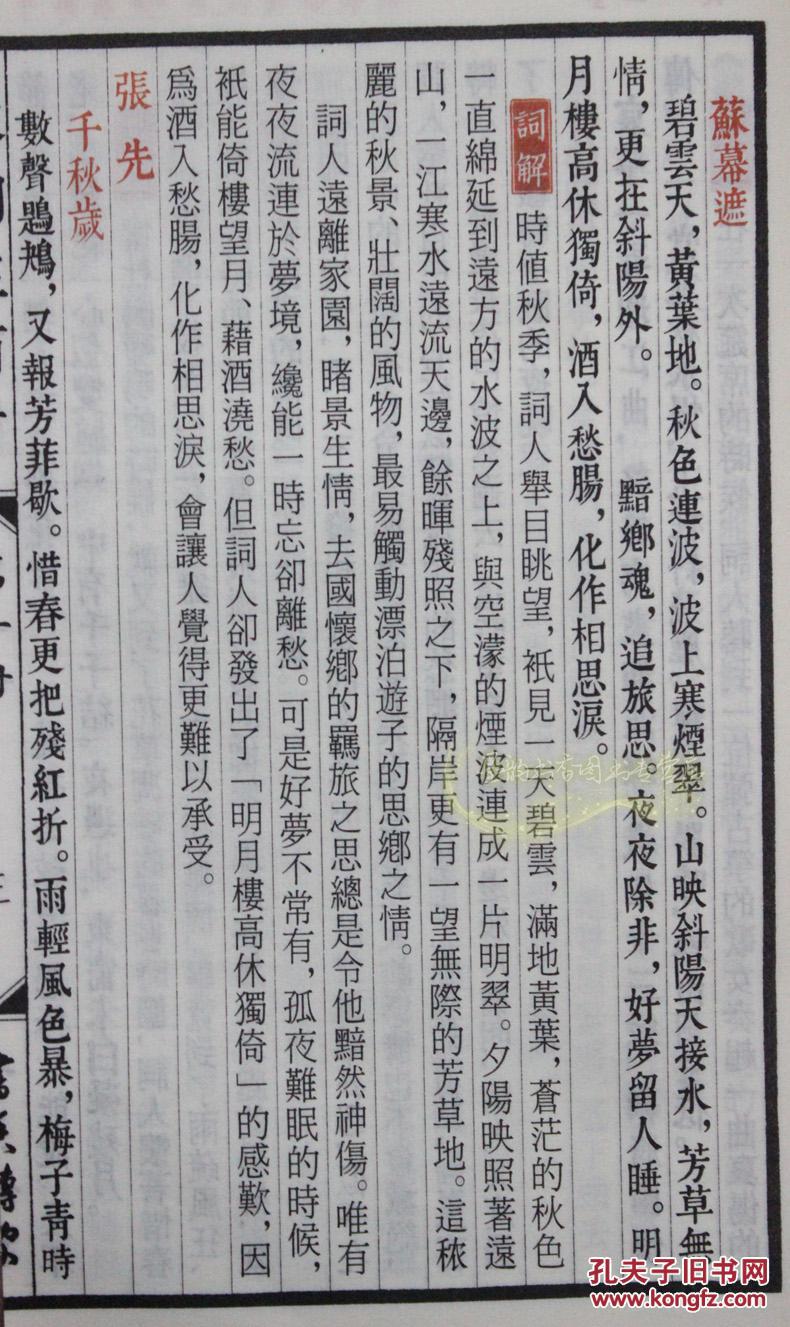 蘇幕遮
碧雲天，黃葉地。秋色連波，波上寒煙翠。山映斜陽天接水，芳草無
情，更在斜陽外。　黯鄉魂，追旅思。夜夜除非，好夢留人睡。明
月樓高休獨倚，酒入愁腸，化作相思淚。
詞解　時值秋季，詞人舉目眺望，衹見一天碧雲，滿地黃葉，蒼茫的秋色
一直綿延到遠方的水波之上，與空濛的煙波連成一片明翠。夕陽映照著遠
山，一江寒水遠流天邊，餘暉殘照之下，隔岸更有一望無際的芳草地。這秾
麗的秋景、壯闊的風物，最易觸動漂泊遊子的思鄉之情。
詞人遠離家園，睹景生情，去國懷鄉的羈旅之思總是令他黯然神傷。唯有
夜夜流連於夢境，纔能一時忘卻離愁。可是好夢不常有，孤夜難眠的時候，
衹能倚樓望月、藉酒澆愁。但詞人卻發出了「明月樓高休獨倚」的感歎，因
爲酒入愁腸，化作相思淚，會讓人覺得更難以承受。
張先
千秋歲
數聲鶗鴂，又報芳菲歇。惜春更把殘紅折。雨輕風色暴，梅子青時
孔夫子旧书网
www.kongfz.com